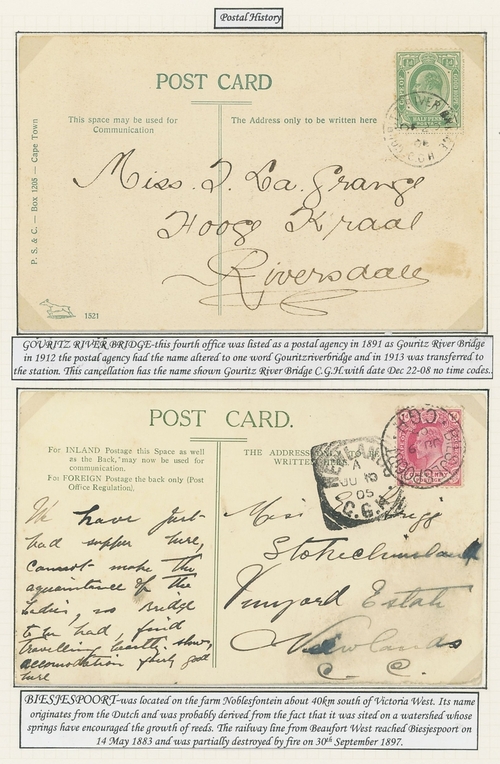 Postal History
POST CARD
This space may be used for
Communication
The Address only to be written here
HALF PENNY
P. S. & C. — Box 1205 — Cape Town
Miss. J. La. Grange
Hooge Kraal
Riversdale
1521
GOURITZ RIVER BRIDGE-this fourth office was listed as a postal agency in 1891 as Gouritz River Bridge
in 1912 the postal agency had the name altered to one word Gouritzriverbridge and in 1913 was transferred to
the station. This cancellation has the name shown Gouritz River Bridge C.G.H.with date Dec 22-08 no time codes..
POST CARD.
For INLAND Postage this Space as well
as the Back, may now be used for
communication.
For FOREIGN Postage the back only (Post
Office Regulation).
THE ADDRESS
WRITTEN
A
JU 10
05
C.G.H.
We have just
had supper here,
cannot make the
aquaintance of the
Ladies, no Bridge
to be had, find
travelling beastly slow,
accomodation fairly good
here
Miss
Vineyard Estate
Newlands
C. C.
BIESJESPOORT-was located on the farm Noblesfontein about 40km south of Victoria West. Its name
originates from the Dutch and was probably derived from the fact that it was sited on a watershed whose
springs have encouraged the growth of reeds. The railway line from Beaufort West reached Biesjespoort on
14 May 1883 and was partially destroyed by fire on 30th September 1897.